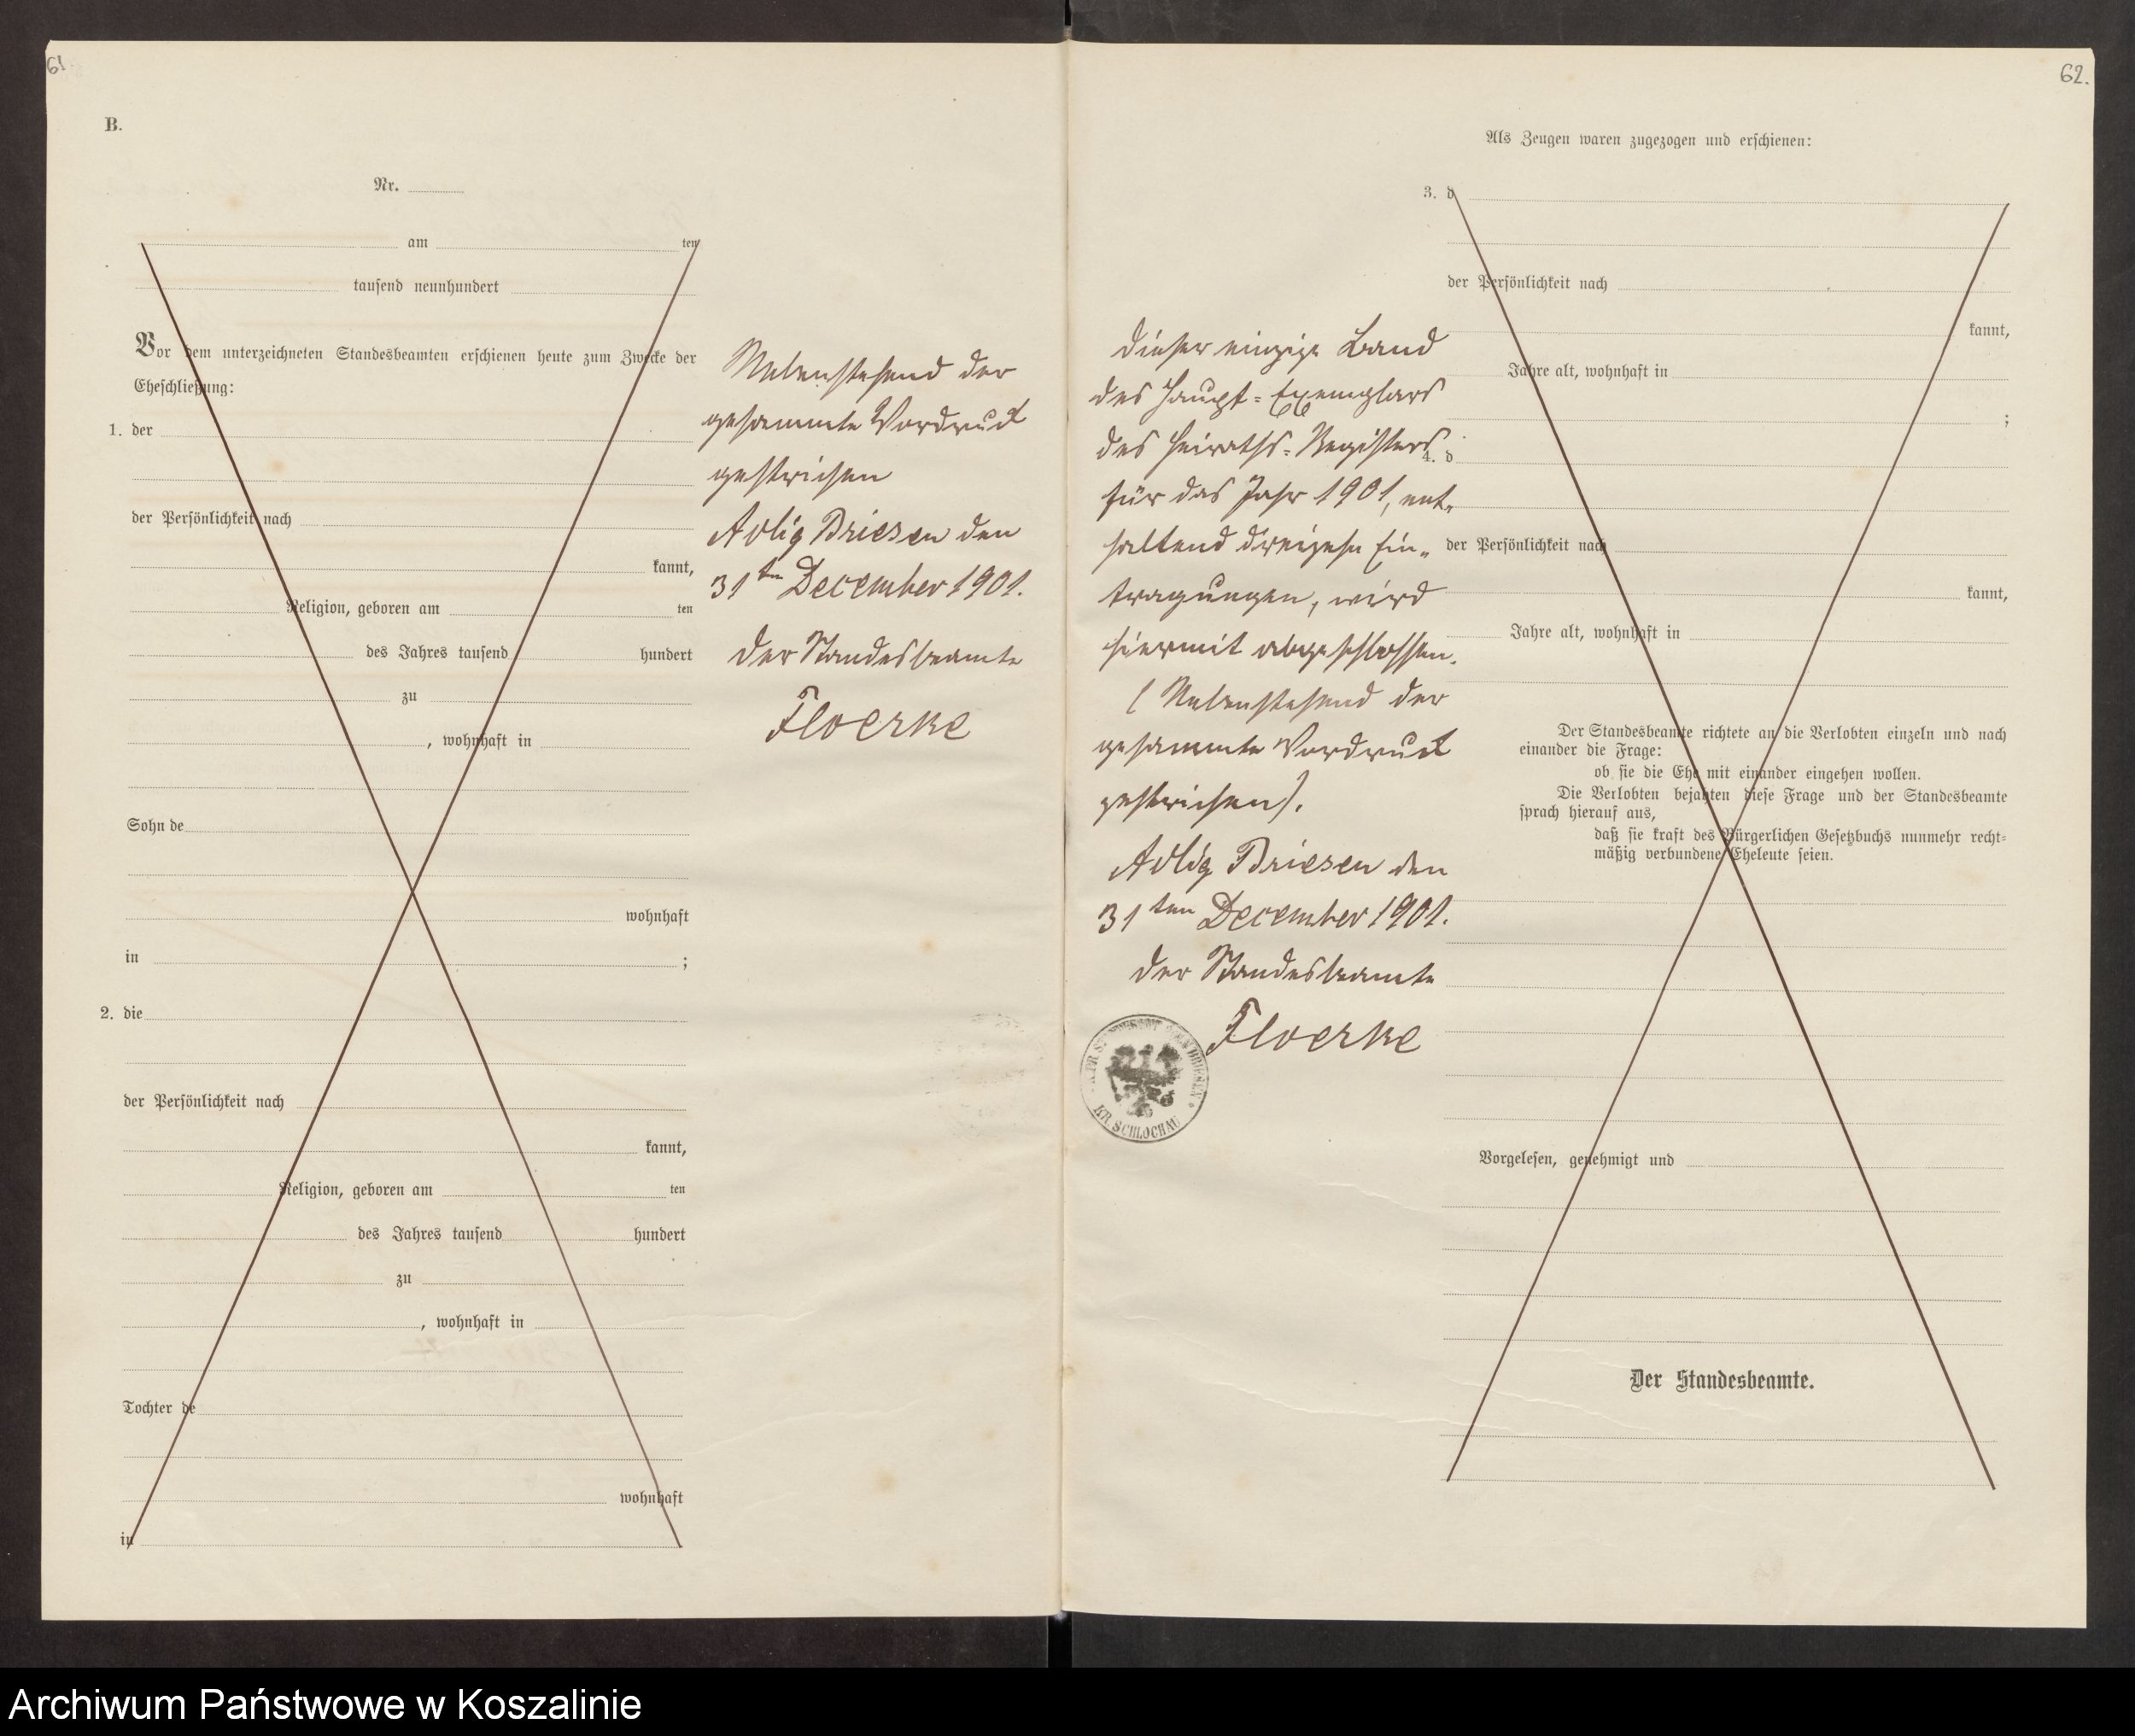 61.
B.
Nr.
am ten
tausend neunhundert
Vor dem unterzeichneten Standesbeamten erschienen heute zum Zwecke der
Eheschließung:
1. der
der Persönlichkeit nach
kannt,
Religion, geboren am ten
des Jahres tausend hundert
zu
, wohnhaft in
Sohn de
wohnhaft
in ;
2. die
der Persönlichkeit nach
kannt,
Religion, geboren am ten
des Jahres tausend hundert
zu
, wohnhaft in
Tochter de
wohnhaft
in
Nebenstehend der
gesammte Vordruck
gestrichen
Adlig Briesen den
31ten December 1901.
Der Standesbeamte
Floerke
62.
Dieser einzige Band
des Haupt-Exemplars
des Heiraths-Registers
für das Jahr 1901, ent-
haltend dreizehn Ein-
tragungen, wird
hiermit abgeschlossen.
(Nebenstehend der
gesammte Vordruck
gestrichen).
Adlig Briesen den
31ten December 1901.
Der Standesbeamte
Floerke
KR. SCHLOCHAU
Als Zeugen waren zugezogen und erschienen:
3. d
der Persönlichkeit nach
kannt,
Jahre alt, wohnhaft in
;
4. d
der Persönlichkeit nach
kannt,
Jahre alt, wohnhaft in
Der Standesbeamte richtete an die Verlobten einzeln und nach
einander die Frage:
ob sie die Ehe mit einander eingehen wollen.
Die Verlobten bejahten diese Frage und der Standesbeamte
sprach hierauf aus,
daß sie kraft des Bürgerlichen Gesetzbuchs nunmehr recht-
mäßig verbundene Eheleute seien.
Vorgelesen, genehmigt und
Der Standesbeamte.
Archiwum Państwowe w Koszalinie